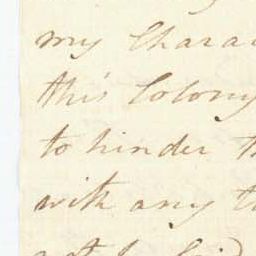 my Charac
this Colony
to hinder th
with any t